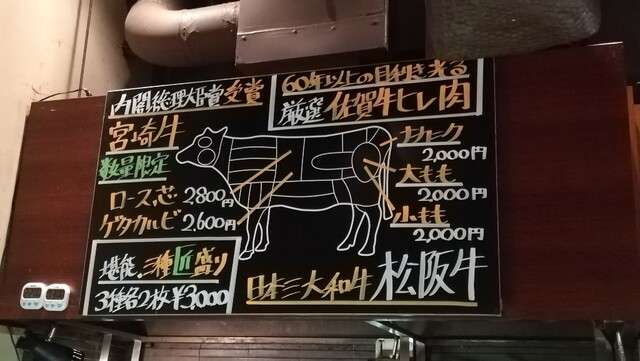 内閣総理大臣賞受賞
宮崎牛
数量限定
ロース芯 2800円
ゲタカルビ 2,600円
堪能、3種匠盛り
3種各2枚¥3,000
60年以上の目利き光る
厳選 佐賀牛ヒレ肉
2,000円
大もも
2,000円
小もも
2,000円
日本三大和牛 松阪牛